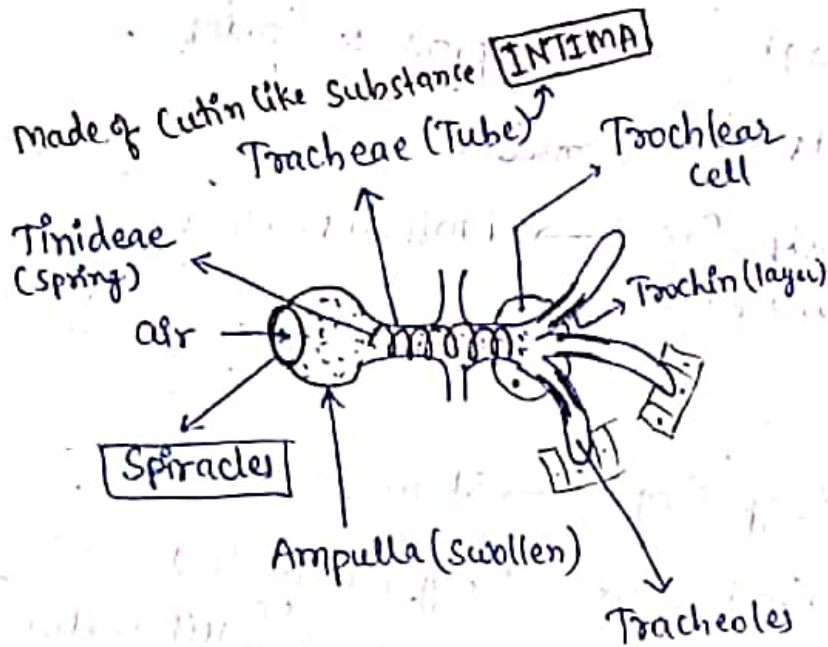 INTIMA
Made of Cutin like substance
Tracheae (Tube)
Trochlear
cell
Tinideae
(spring)
Trochin (layer)
air
Spiracles
Ampulla (Swollen)
Tracheoles